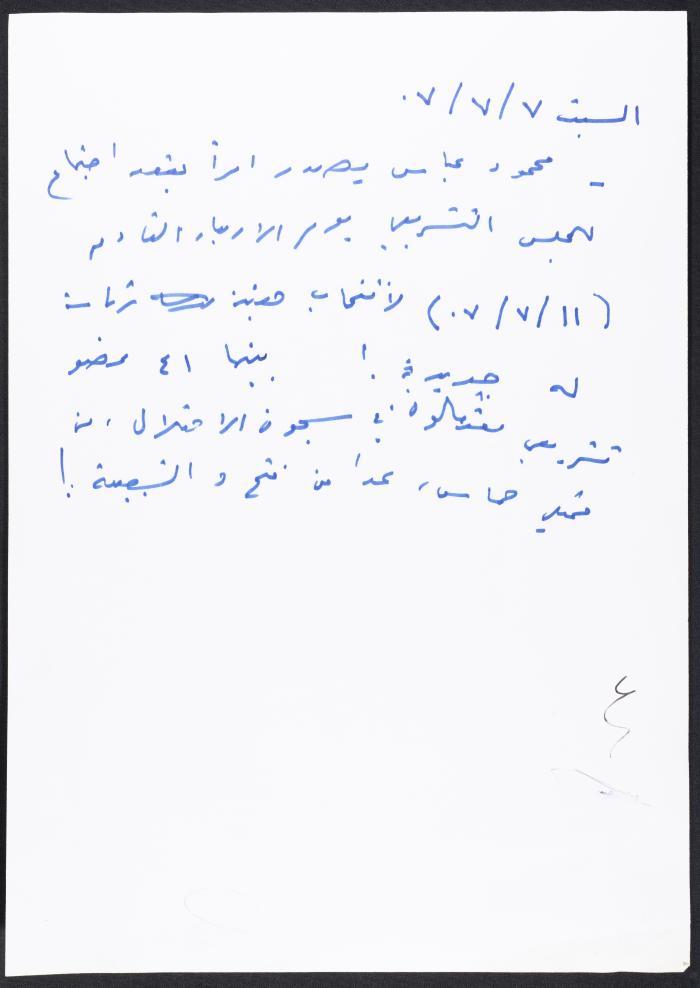 السبت ٠٧/٧/٧
- محمود عباس يصدر امراً بعقد اجتماع
للمجلس التشريعي يوم الاربعاء القادم
(٠٧/٧/١١) لانتخاب هيئة رئاسة
له جديدة !. بينما ٤١ عضو
تشريعي معتقلون في سجون الاحتلال، من
ممثلي حماس، عدا من فتح و الشعبية !.
٤